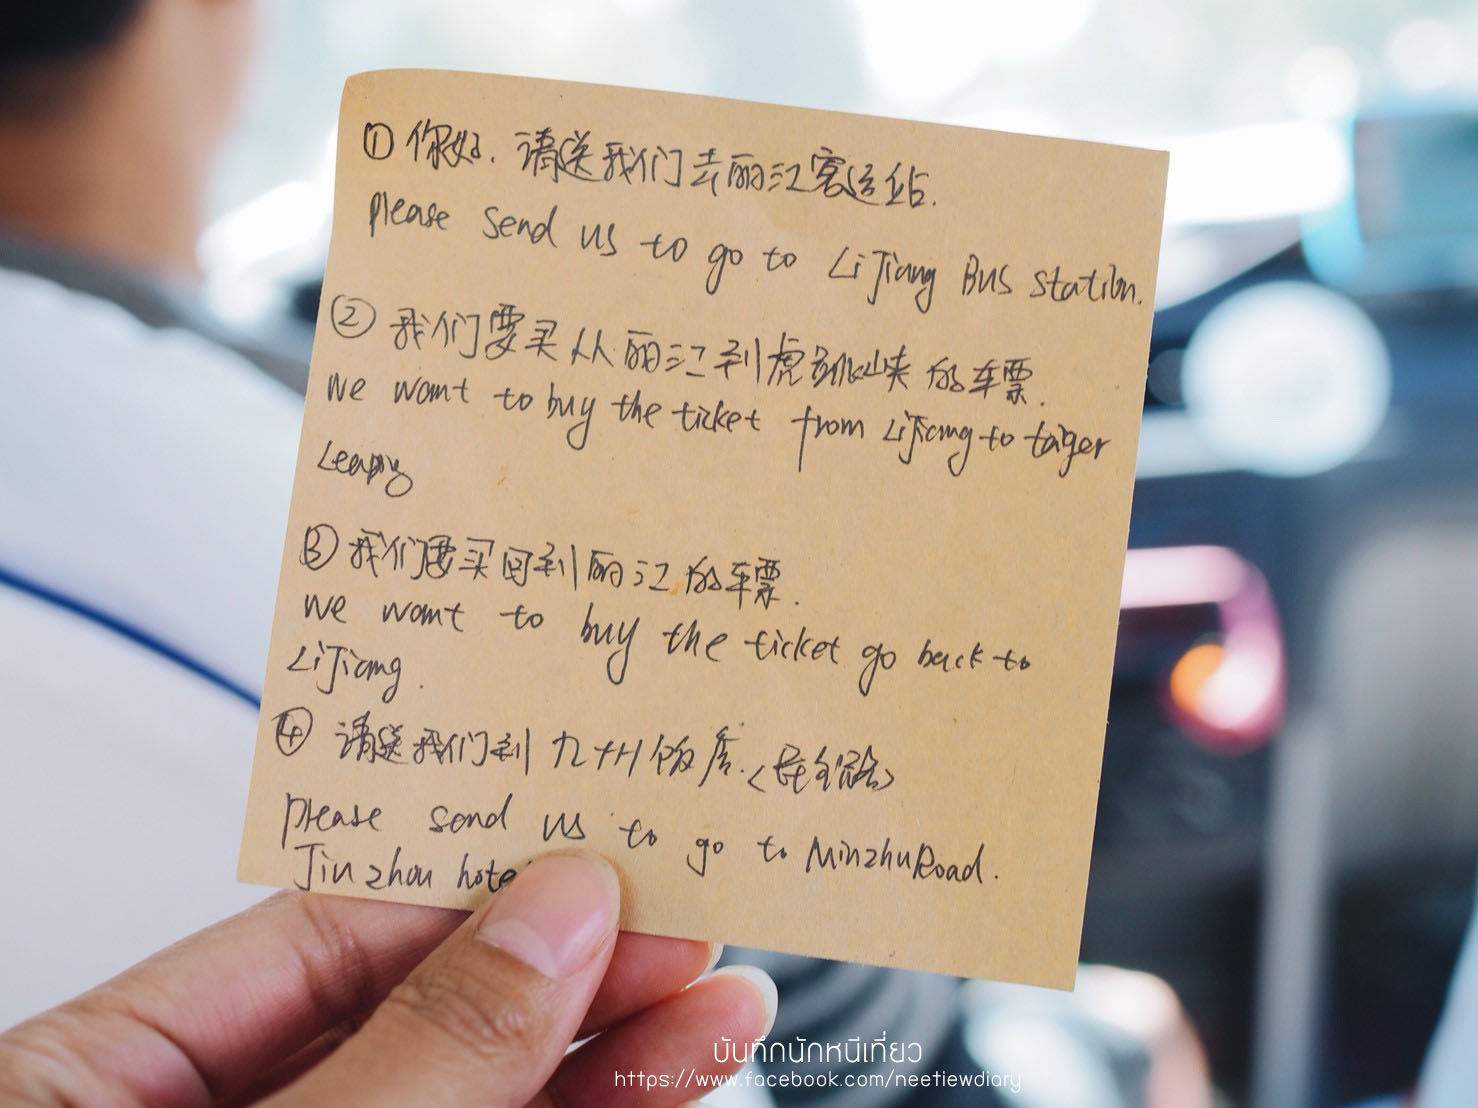 ① 你好. 请送我们去丽江客运站.
please send us to go to LiJiang Bus station.
② 我们要买从丽江到虎跳峡的车票.
we want to buy the ticket from LiJiang to taiger
Leaping
③ 我们要买回到丽江的车票.
we want to buy the ticket go back to
LiJiang.
④ 请送我们到九州饭店.<民主路>
please send us to go to MinzhuRoad.
Jiuzhou hote
บันทึกนักหนีเที่ยว
https://www.facebook.com/neetiewdiary